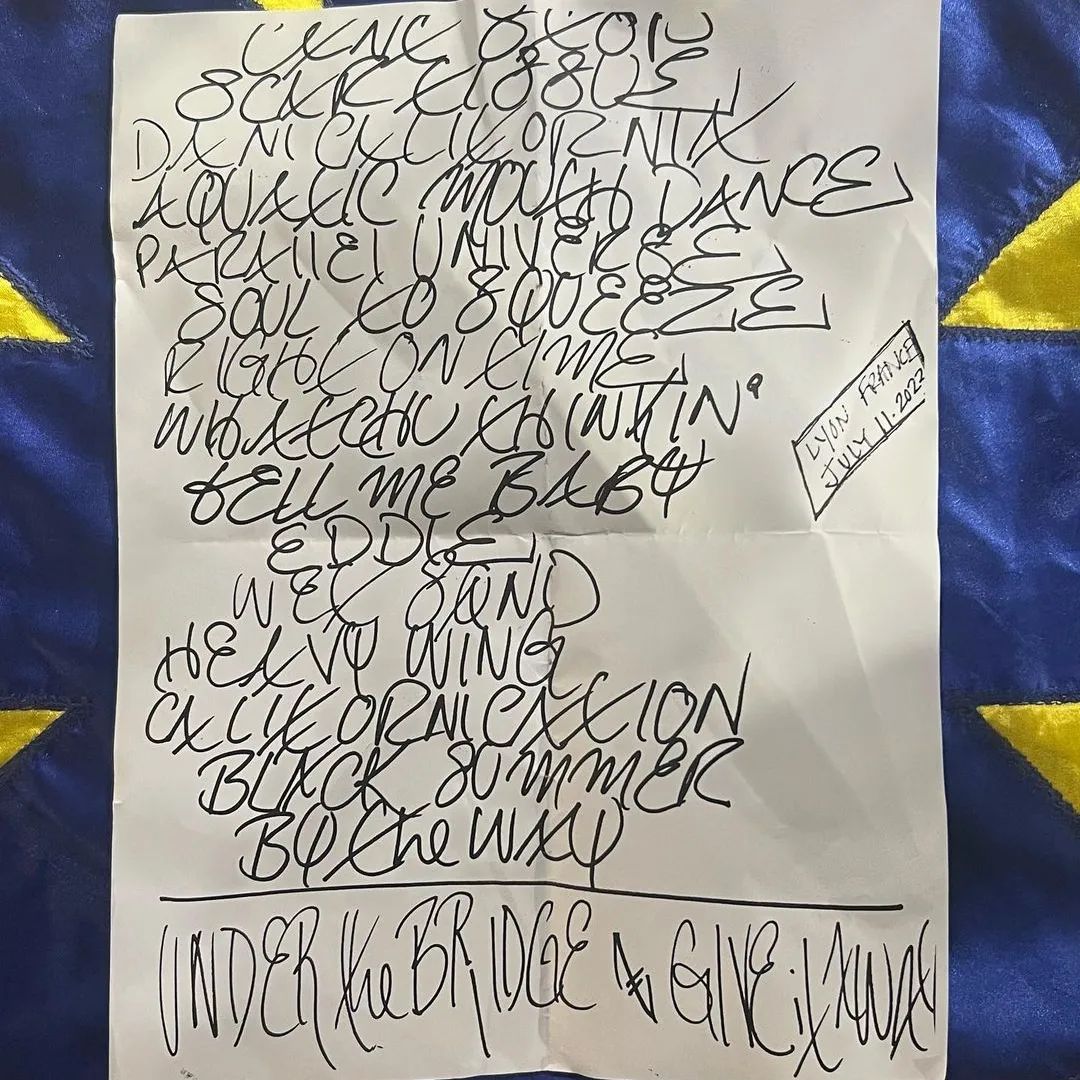 CANT STOP
SCAR TISSUE
DANI CALIFORNIA
AQUATIC MOUTH DANCE
PARALLEL UNIVERSE
SOUL TO SQUEEZE
RIGHT ON TIME
WHATCHU THINKIN'
TELL ME BABY
EDDIE
WET SAND
HEAVY WING
CALIFORNICATION
BLACK SUMMER
BY the WAY
UNDER the BRIDGE & GIVE it AWAY
LYON FRANCE
JULY 11. 2023